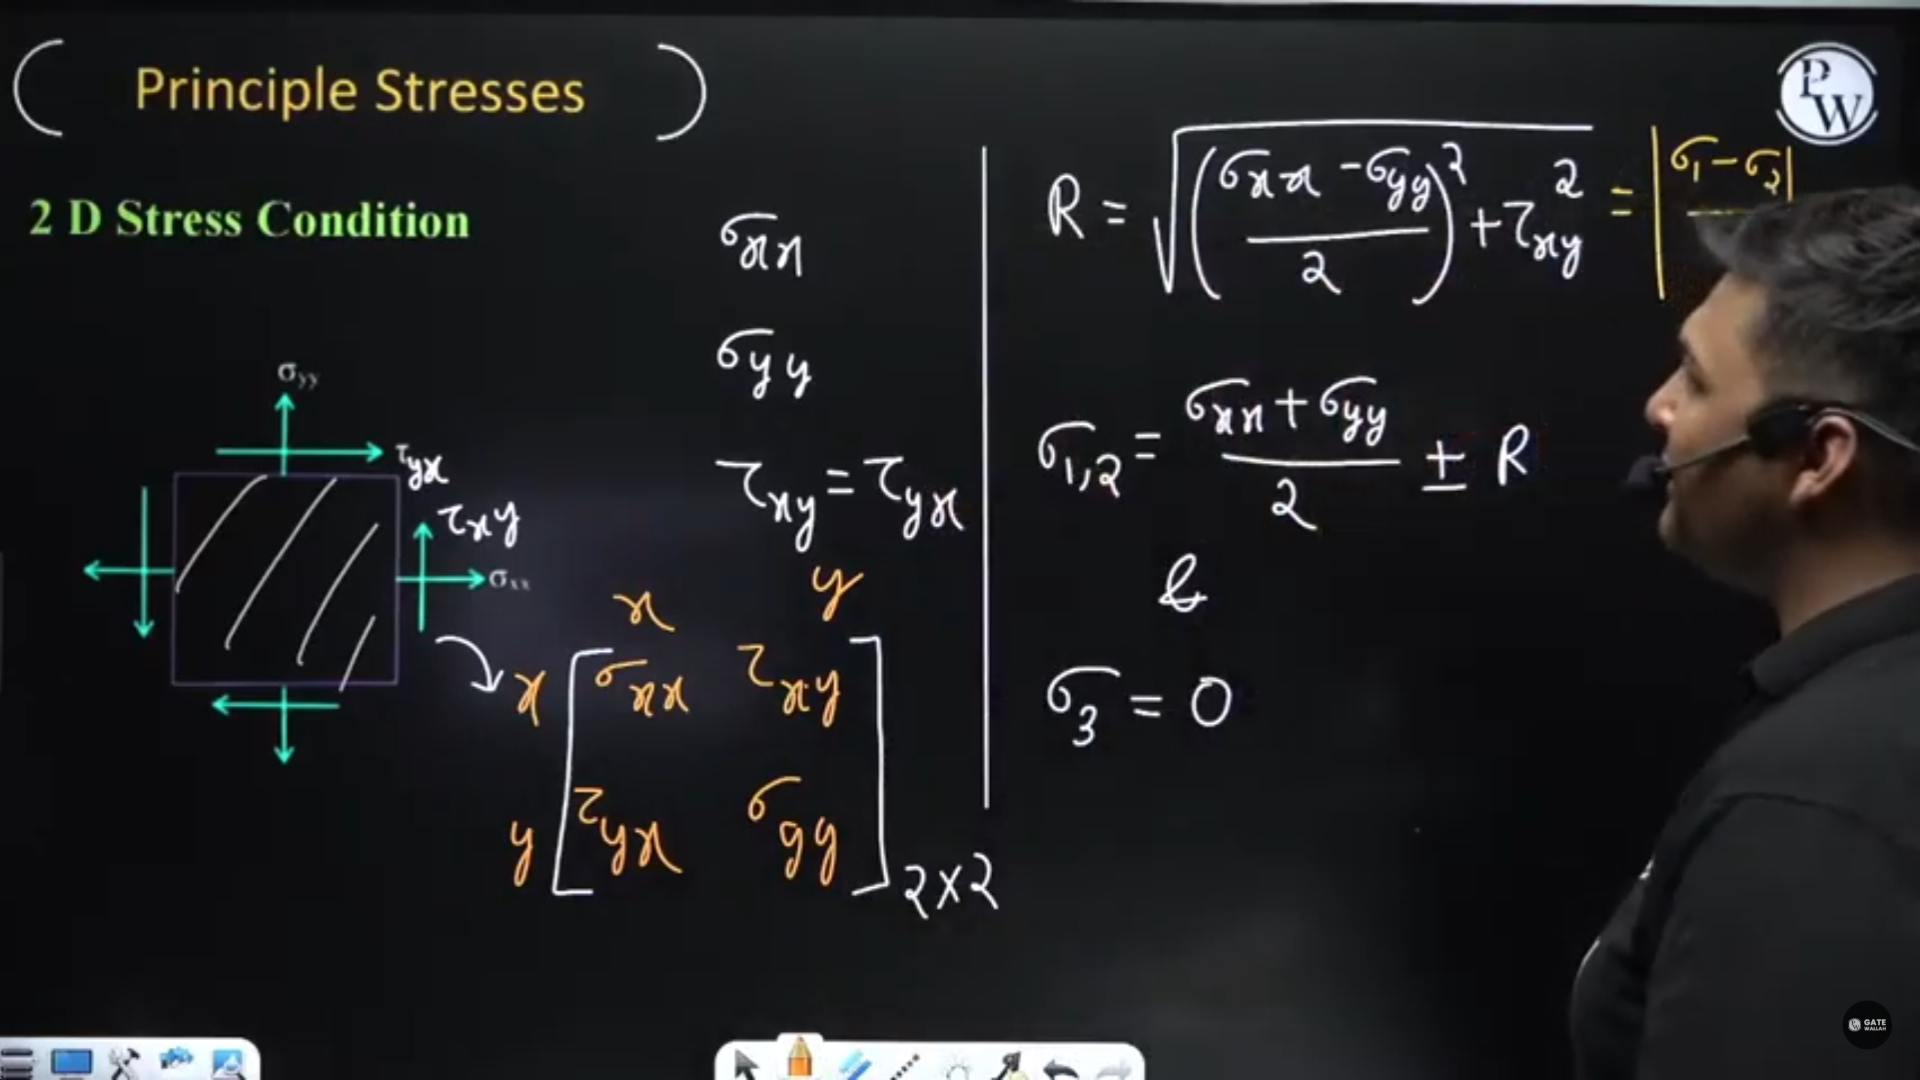 Principle Stresses
2 D Stress Condition
σyy
τyx
τxy
σxx
σxx
σyy
τxy = τyx
x y
x [ σxx τxy
y τyx σyy ] 2×2
R = √((σxx - σyy)/2)² + τxy² = |σ1 - σ2|
σ1,2 = (σxx + σyy)/2 ± R
&
σ3 = 0
PW
GATE
WALLAH